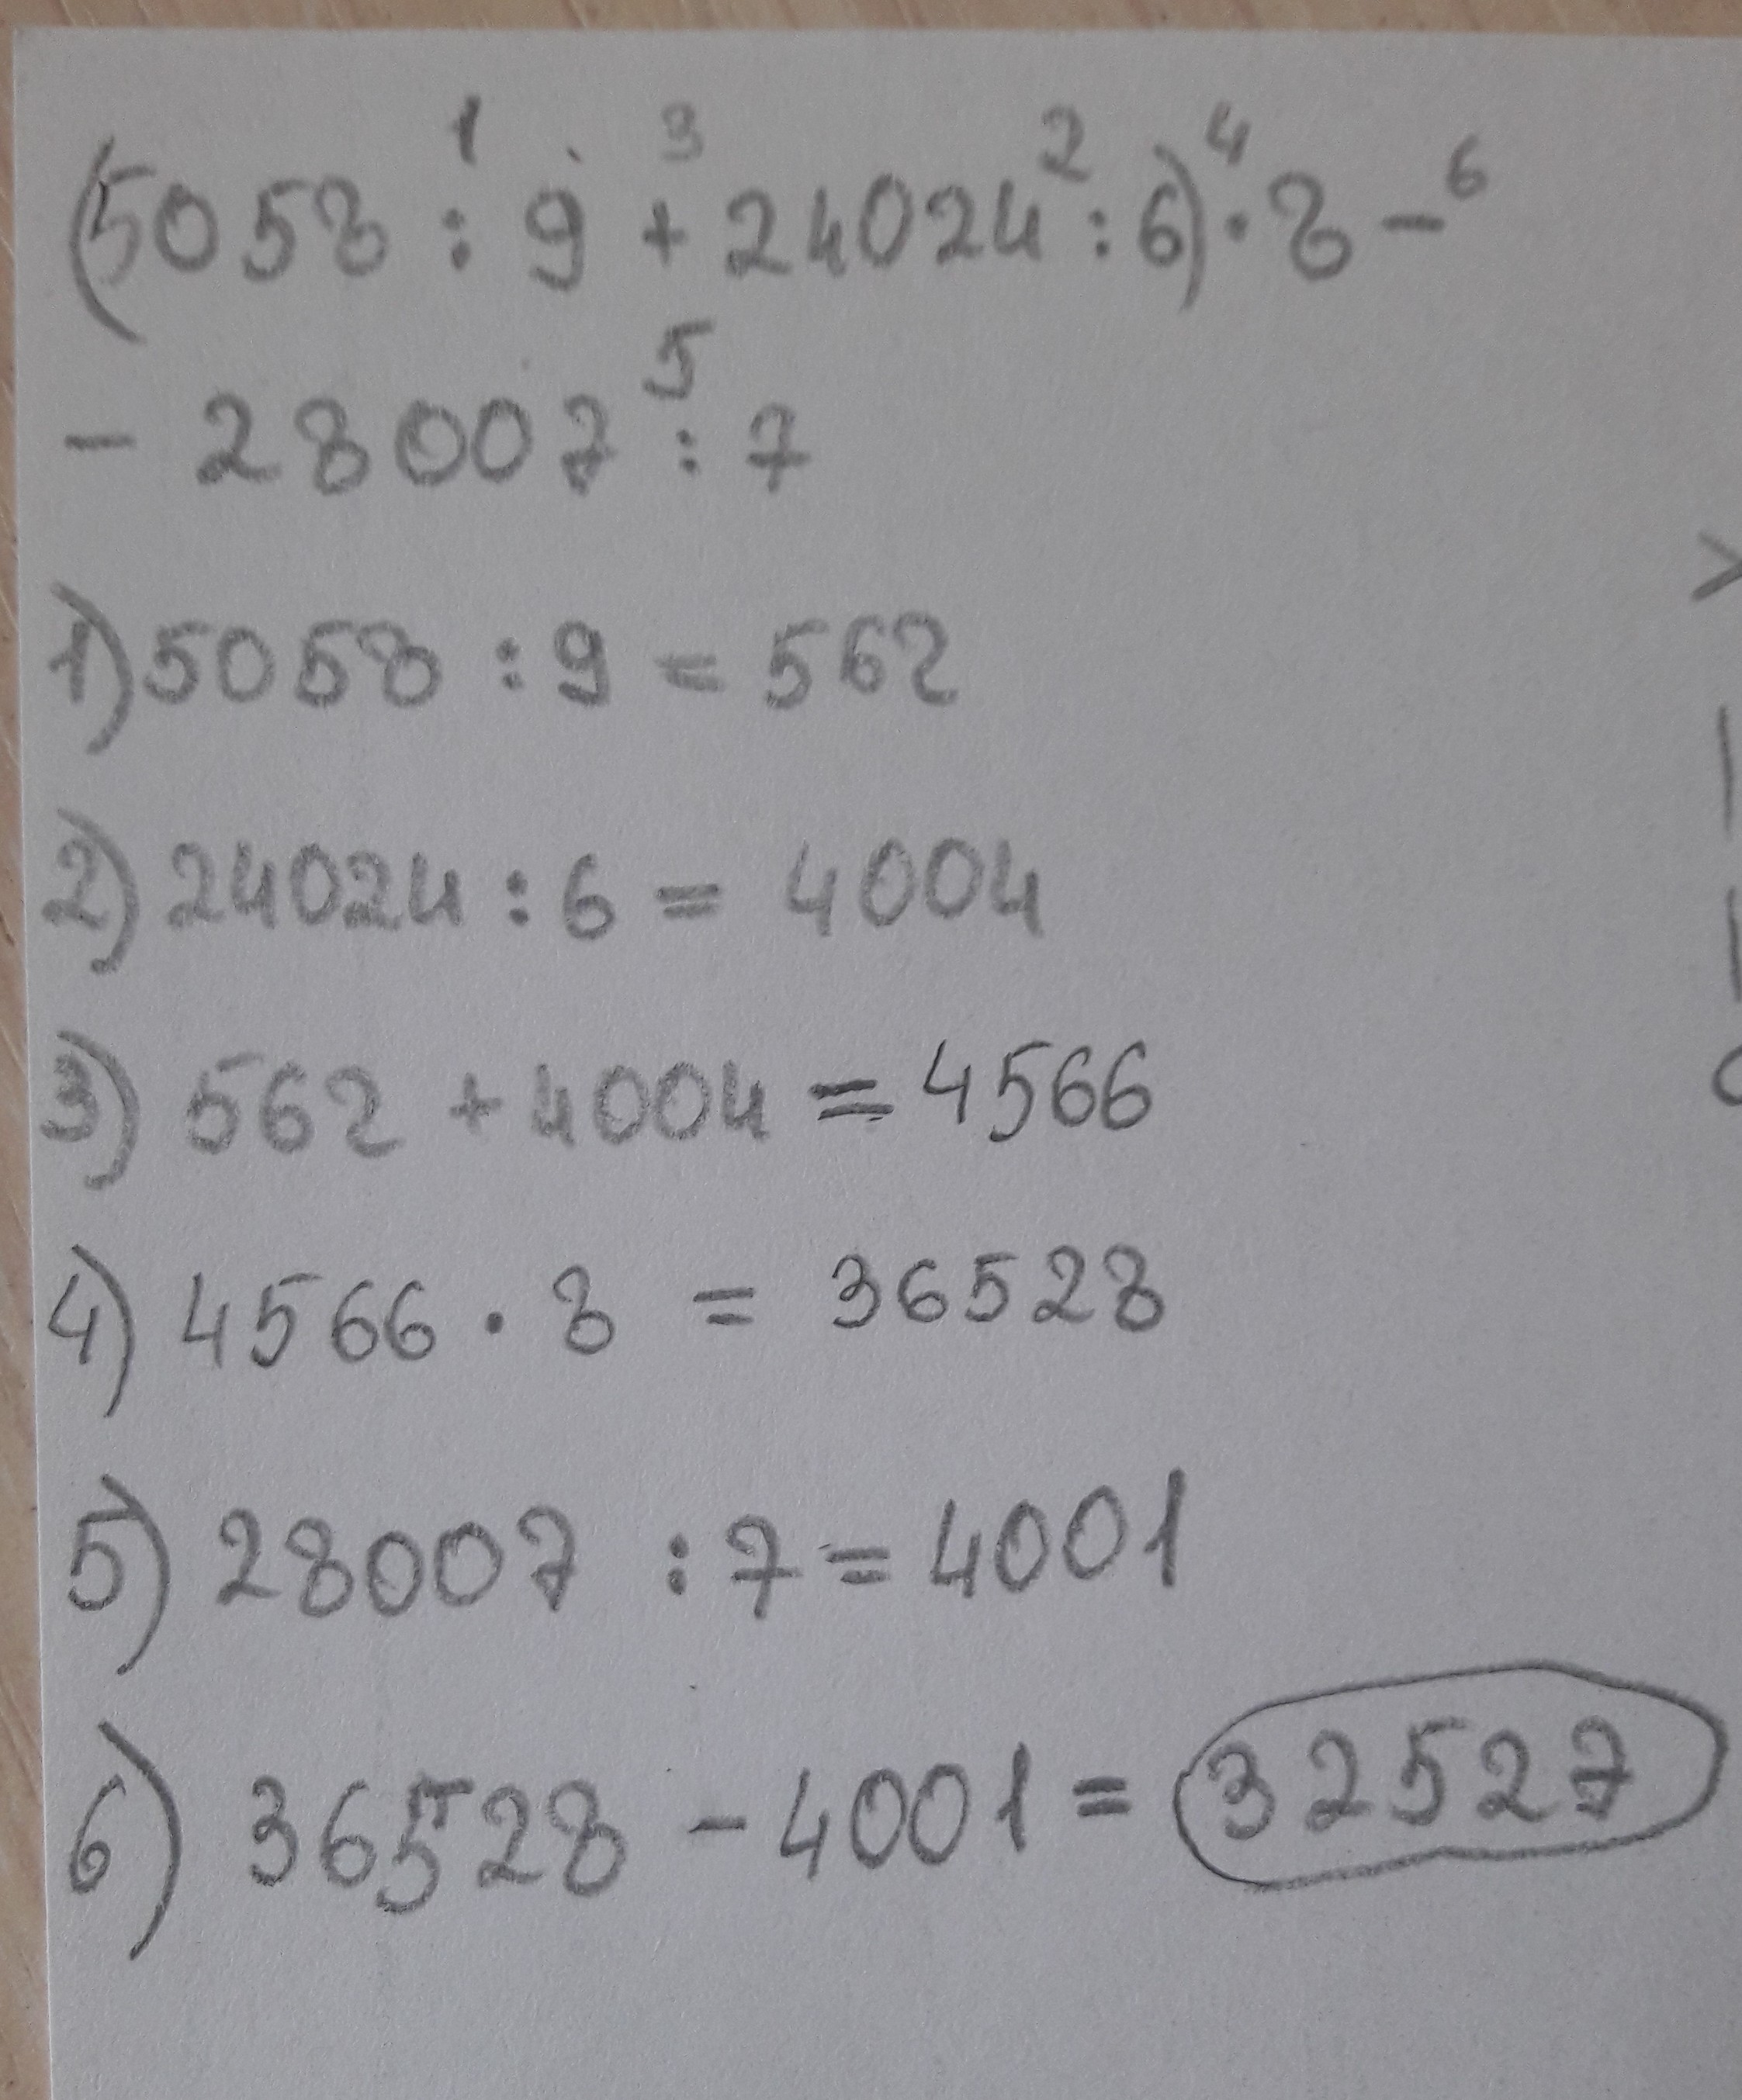 1 3 2 4 6
(5058 : 9 + 24024 : 6) · 8 -
5
- 28007 : 7
1) 5058 : 9 = 562
2) 24024 : 6 = 4004
3) 562 + 4004 = 4566
4) 4566 · 8 = 36528
5) 28007 : 7 = 4001
6) 36528 - 4001 = 32527